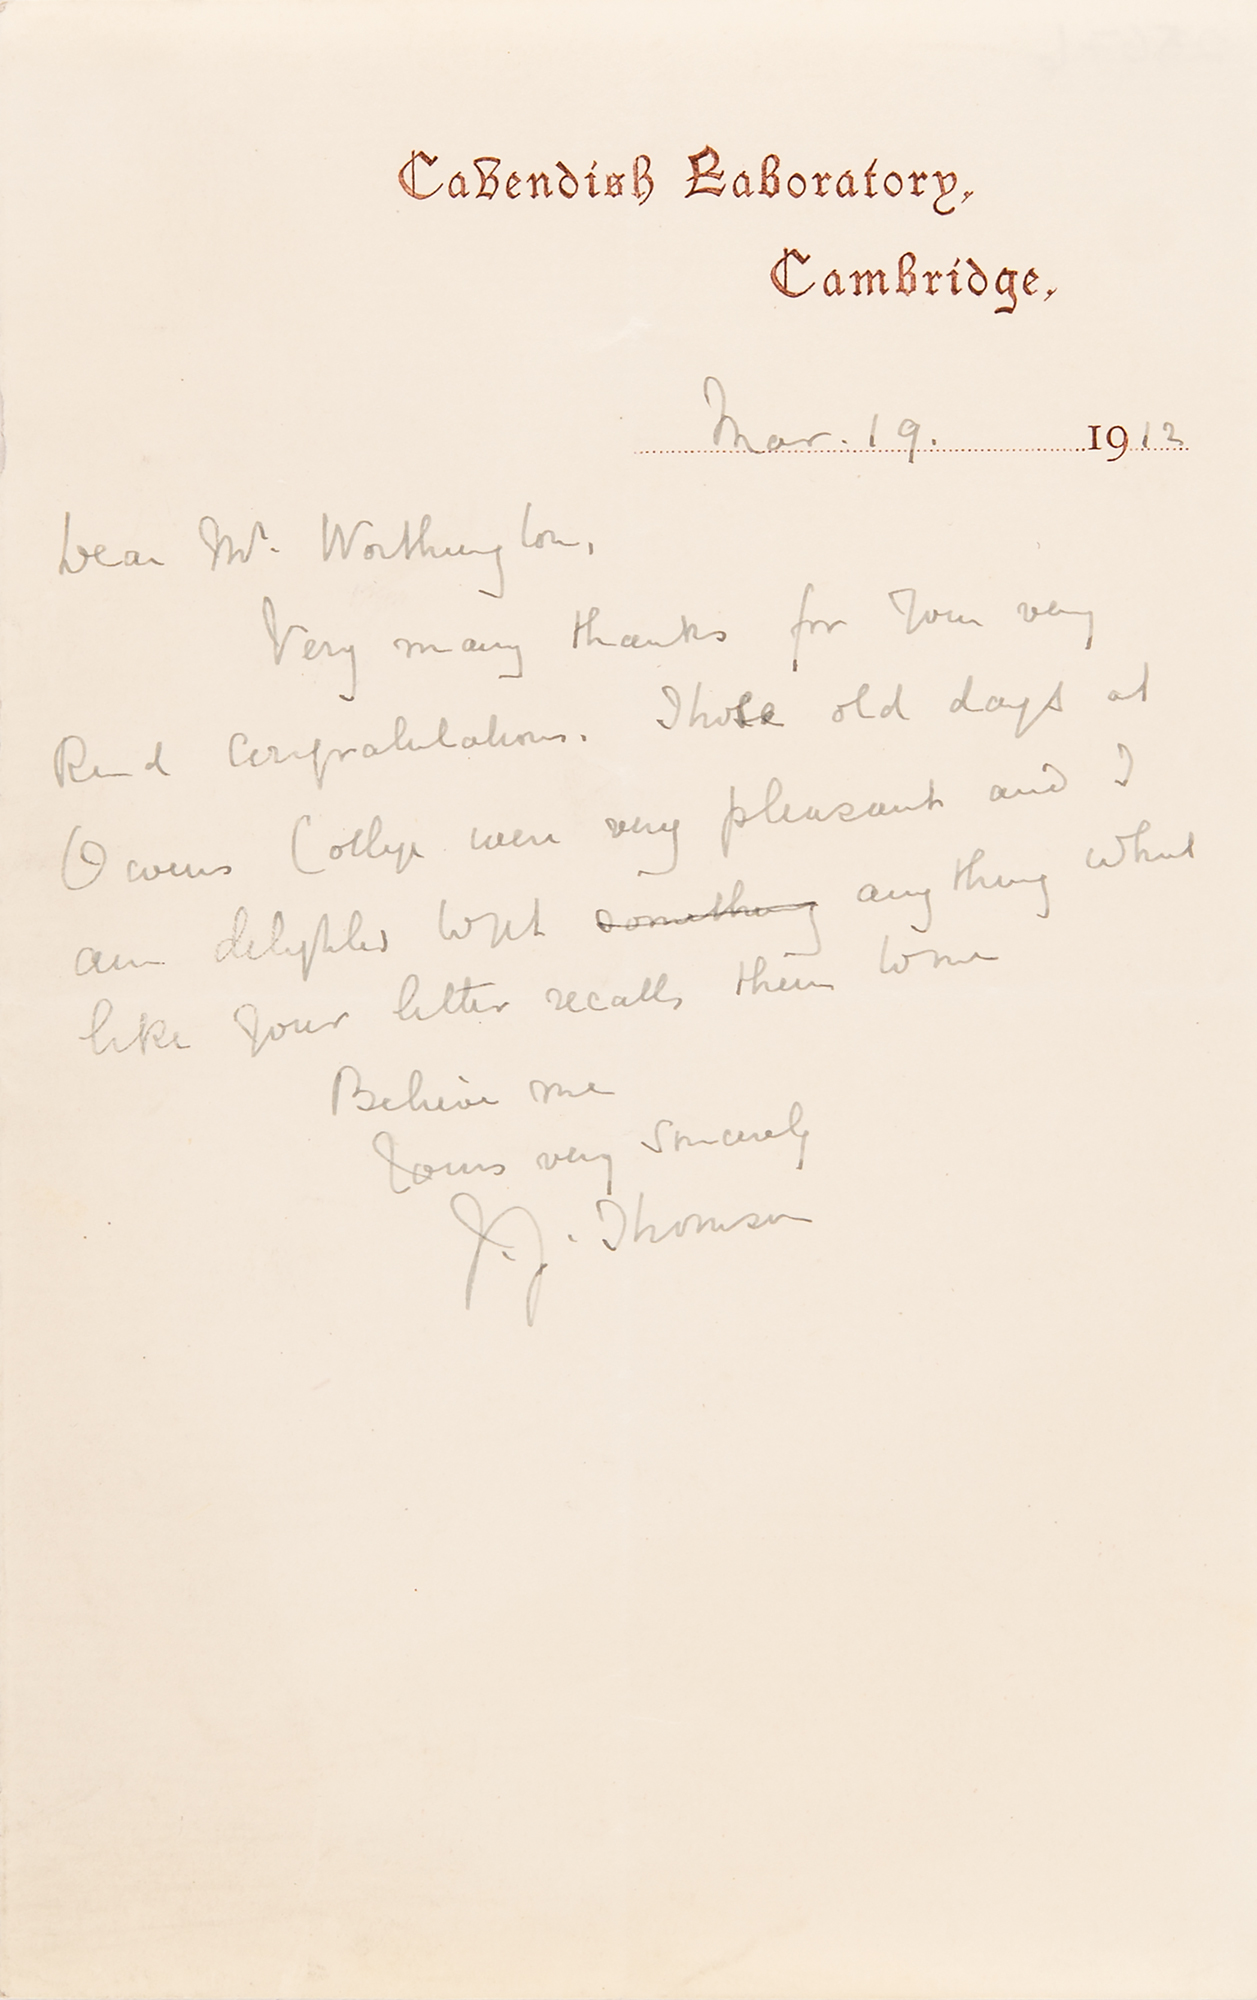 Cavendish Laboratory,
Cambridge.
Mar. 19. 1912
Dear Mr. Worthington,
Very many thanks for your very
kind congratulations. Those old days at
Owens College were very pleasant and I
am delighted to get something anything what
like your letter recalls them to me
Believe me
Yours very sincerely
J.J. Thomson